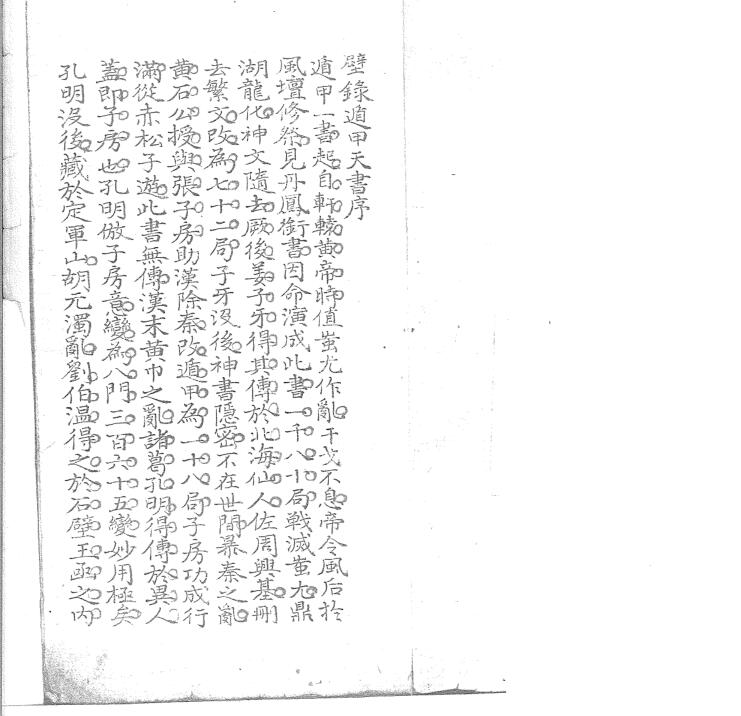 壁錄遁甲天書序
遁甲一書起自軒轅黃帝時值蚩尤作亂干戈不息帝令風后於
風壇修祭見丹鳳銜書因命演成此書一千八十局戰滅蚩尤鼎
湖龍化神文隨去厥後姜子牙得其傳於北海仙人佐周興基刪
去繁文改為七十二局子牙沒後神書隱密不在世間暴秦之亂
黃石公授與張子房助漢除秦改遁甲為一十八局子房功成行
滿從赤松子遊此書無傳漢末黃巾之亂諸葛孔明得傳於異人
蓋即子房也孔明倣子房意變為八門三百六十五變妙用極矣
孔明沒後藏於定軍山胡元濁亂劉伯溫得之於石壁玉函之內